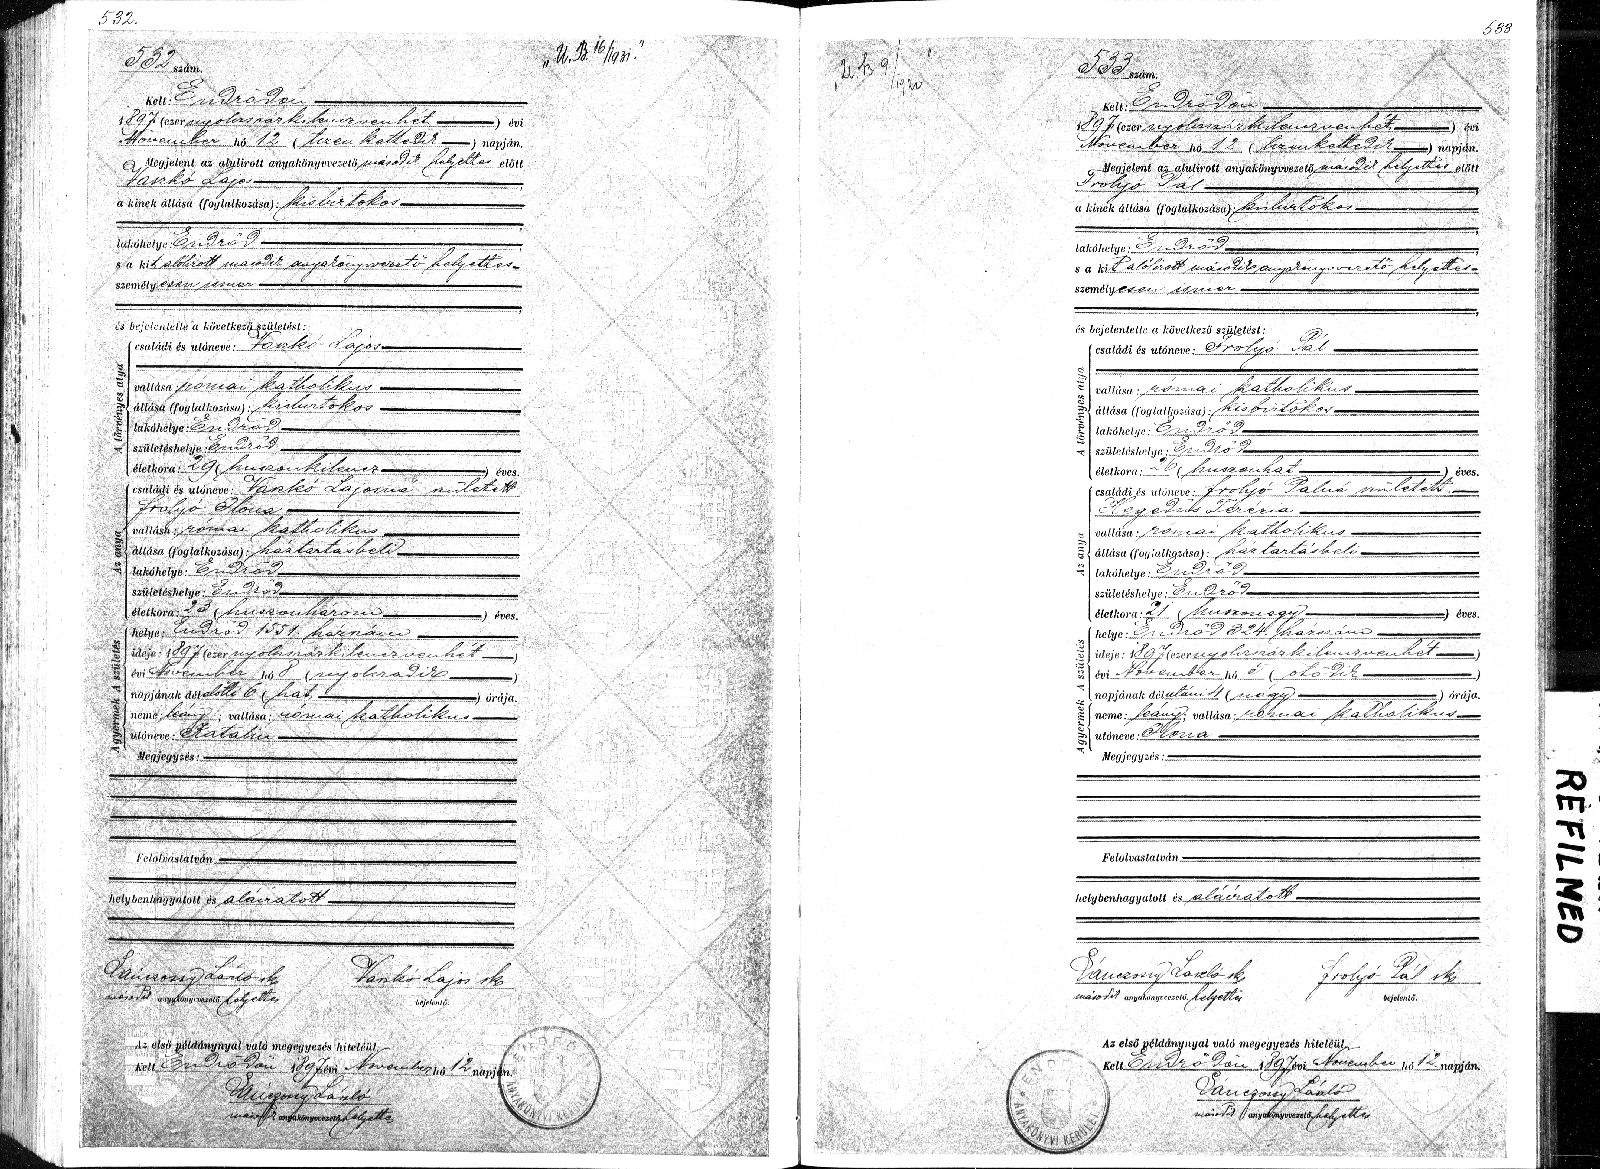 532.
532 szám.
"U. B. 16/1931."
Kelt: Endrődön
1897 (ezernyolcszázkilenczvenhét) évi
November hó 12 (tizenkettedik) napján.
Megjelent az alulirott anyakönyvvezető második helyettes előtt
Vaszkó Lajos
a kinek állása (foglalkozása): kisbirtokos
lakóhelye: Endrőd
s a kit alólirott második anyakönyvvezető helyettes
személyesen ismer
és bejelentette a következő születést:
A törvényes atya
családi és utóneve: Vaszkó Lajos
vallása: római katholikus
állása (foglalkozása): kisbirtokos
lakóhelye: Endrőd
születéshelye: Endrőd
életkora: 29 (huszonkilencz) éves.
Az anya
családi és utóneve: Vaszkó Lajosné született
Frolyó Ilona
vallása: római katholikus
állása (foglalkozása): háztartásbeli
lakóhelye: Endrőd
születéshelye: Endrőd
életkora: 23 (huszonhárom) éves.
A születés
helye: Endrőd 1551. házszám
ideje: 1897 (ezernyolczszázkilenczvenhét)
évi November hó 8 (nyolczadik)
napjának délelőtti 6 (hat) órája.
A gyermek
neme: leány; vallása: római katholikus
utóneve: Katalin
Megjegyzés:
Felolvastatván
helybenhagyatott és aláiratott
Vánczony László sk
második anyakönyvvezető helyettes
Vaszkó Lajos sk
bejelentő.
Az első példánynyal való megegyezés hiteléül
Kelt Endrődön 1897 évi November hó 12 napján.
Vánczony László
második anyakönyvvezető helyettes
533
"U B 9/1920"
533 szám.
Kelt: Endrődön
1897 (ezernyolczszázkilenczvenhét) évi
November hó 12 (tizenkettedik) napján.
Megjelent az alulirott anyakönyvvezető második helyettes előtt
Frolyó Pál
a kinek állása (foglalkozása): kisbirtokos
lakóhelye: Endrőd
s a kit alólirott második anyakönyvvezető helyettes
személyesen ismer
és bejelentette a következő születést:
A törvényes atya
családi és utóneve: Frolyó Pál
vallása: római katholikus
állása (foglalkozása): kisbirtokos
lakóhelye: Endrőd
születéshelye: Endrőd
életkora: 26 (huszonhat) éves.
Az anya
családi és utóneve: Frolyó Pálné született
Hegedűs Terézia
vallása: római katholikus
állása (foglalkozása): háztartásbeli
lakóhelye: Endrőd
születéshelye: Endrőd
életkora: 21 (huszonegy) éves.
A születés
helye: Endrőd 324. házszám
ideje: 1897 (ezernyolczszázkilenczvenhét)
évi November hó 5 (ötödik)
napjának délutáni 4 (négy) órája.
A gyermek
neme: leány; vallása: római katholikus
utóneve: Ilona
Megjegyzés:
Felolvastatván
helybenhagyatott és aláiratott
Vánczony László sk
második anyakönyvvezető helyettes
Frolyó Pál sk
bejelentő.
Az első példánynyal való megegyezés hiteléül
Kelt Endrődön 1897 évi November hó 12 napján.
Vánczony László
második anyakönyvvezető helyettes
ENDRŐD
ANYAKÖNYVI KERÜLET
REFILMED